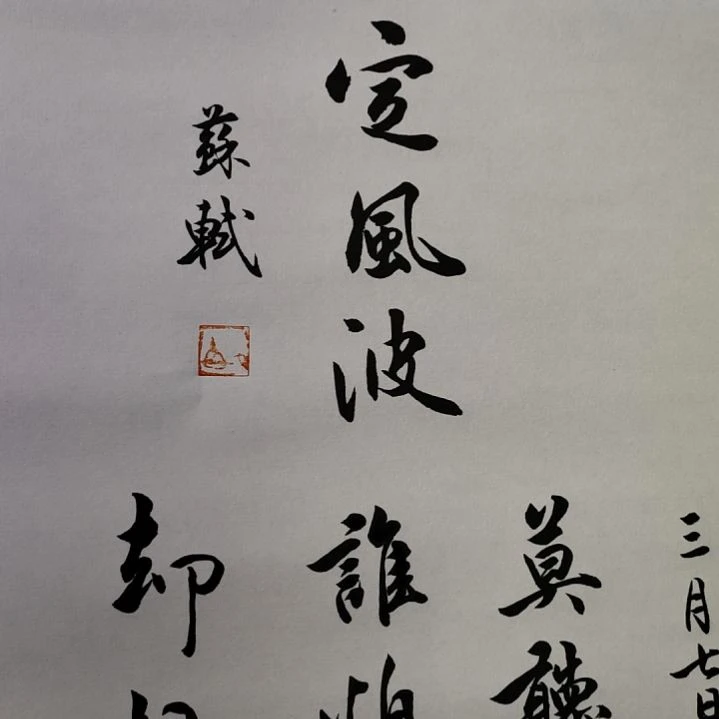 定風波
蘇軾
三月七日
莫聽
誰
却